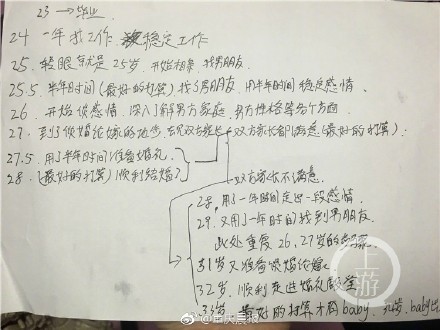 23 → 毕业
24 一年找工作, 稳定工作
25. 转眼就是25岁, 开始相亲, 找男朋友.
25.5. 半年时间(最好的打算)找了男朋友, 用半年时间稳定感情.
26. 开始谈感情, 深入了解男方家庭, 男方性格等各个方面
27. 到了谈婚论嫁的地步, 双方家长都满意(最好的打算).
27.5. 用了半年时间准备婚礼.
28. (最好的打算) 顺利结婚
双方家长不满意.
28. 用了一年时间走出一段感情.
29. 又用了一年时间找到男朋友.
此处重复26, 27岁的
31岁又准备谈婚论嫁
32岁, 顺利走进婚礼殿堂
33岁 最好的打算才有baby.
上游
@重庆晨报